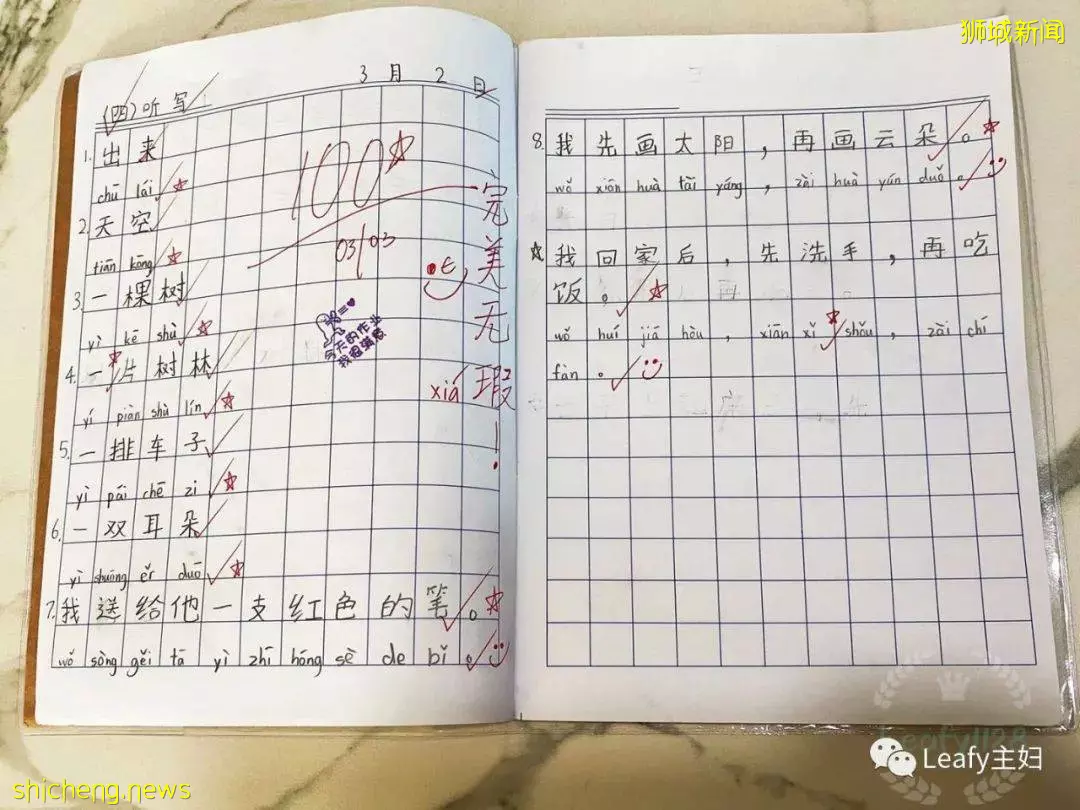 狮城新闻
3月2日
(四)听写
100
1. 出来
chū lái
2. 天空
tiān kōng
3. 一棵树
yì kē shù
4. 一片树林
yí piàn shù lín
5. 一排车子
yì pái chē zi
6. 一双耳朵
yì shuāng ěr duō
7. 我送给他一支红色的笔。
wǒ sòng gěi tā yì zhī hóng sè de bǐ。
03/03
今天的作业
我很满意
完美无瑕!
xiá
8. 我先画太阳，再画云朵。
wǒ xiān huà tài yáng，zài huà yún duǒ。
我回家后，先洗手，再吃
饭。
wǒ huí jiā hòu，xiān xǐ shǒu，zài chī
fàn。
Leafy1128
Leafy主妇
shicheng.news